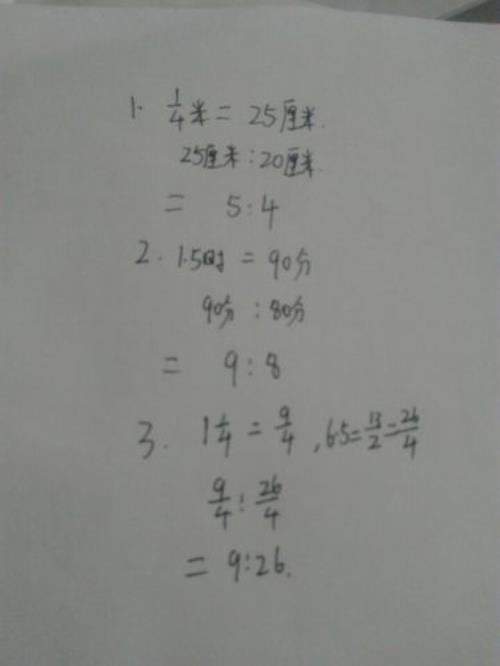 1. 1/4米 = 25厘米.
25厘米 : 20厘米.
= 5 : 4
2. 1.5时 = 90分
90分 : 80分
= 9 : 8
3. 1 1/4 = 9/4 , 6.5 = 13/2 = 26/4
9/4 : 26/4
= 9 : 26.